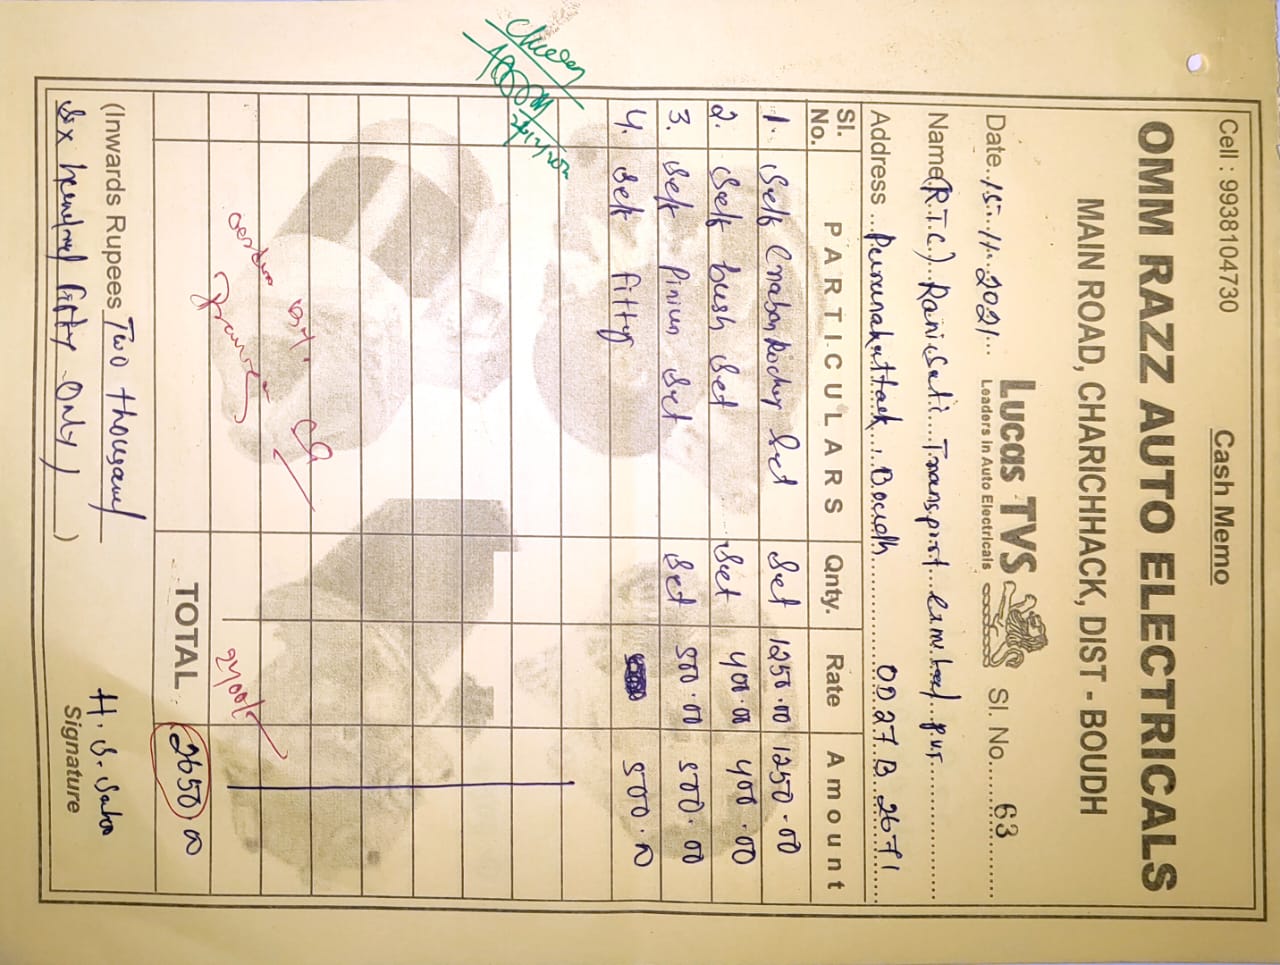 Cell : 9938104730
Cash Memo
OMM RAZZ AUTO ELECTRICALS
MAIN ROAD, CHARICHHACK, DIST - BOUDH
Lucas TVS
Leaders in Auto Electricals
Date..15.11.2021...
Sl. No......63
Name (R.T.C.) Rani Sati Transport p.v.t
Address Purunakattack, Boudh OD 27 B 2671
Sl. No. PARTICULARS Qnty. Rate Amount
1. Self Set Set 1250.00 1250.00
2. Self bush Set Set 400.00 400.00
3. Self Pinion Set Set 500.00 500.00
4. Self fitty 500.00
2400/-
TOTAL 2650.00
(Inwards Rupees Two thousand
Six hundred fifty Only)
H. S. Sahoo
Signature